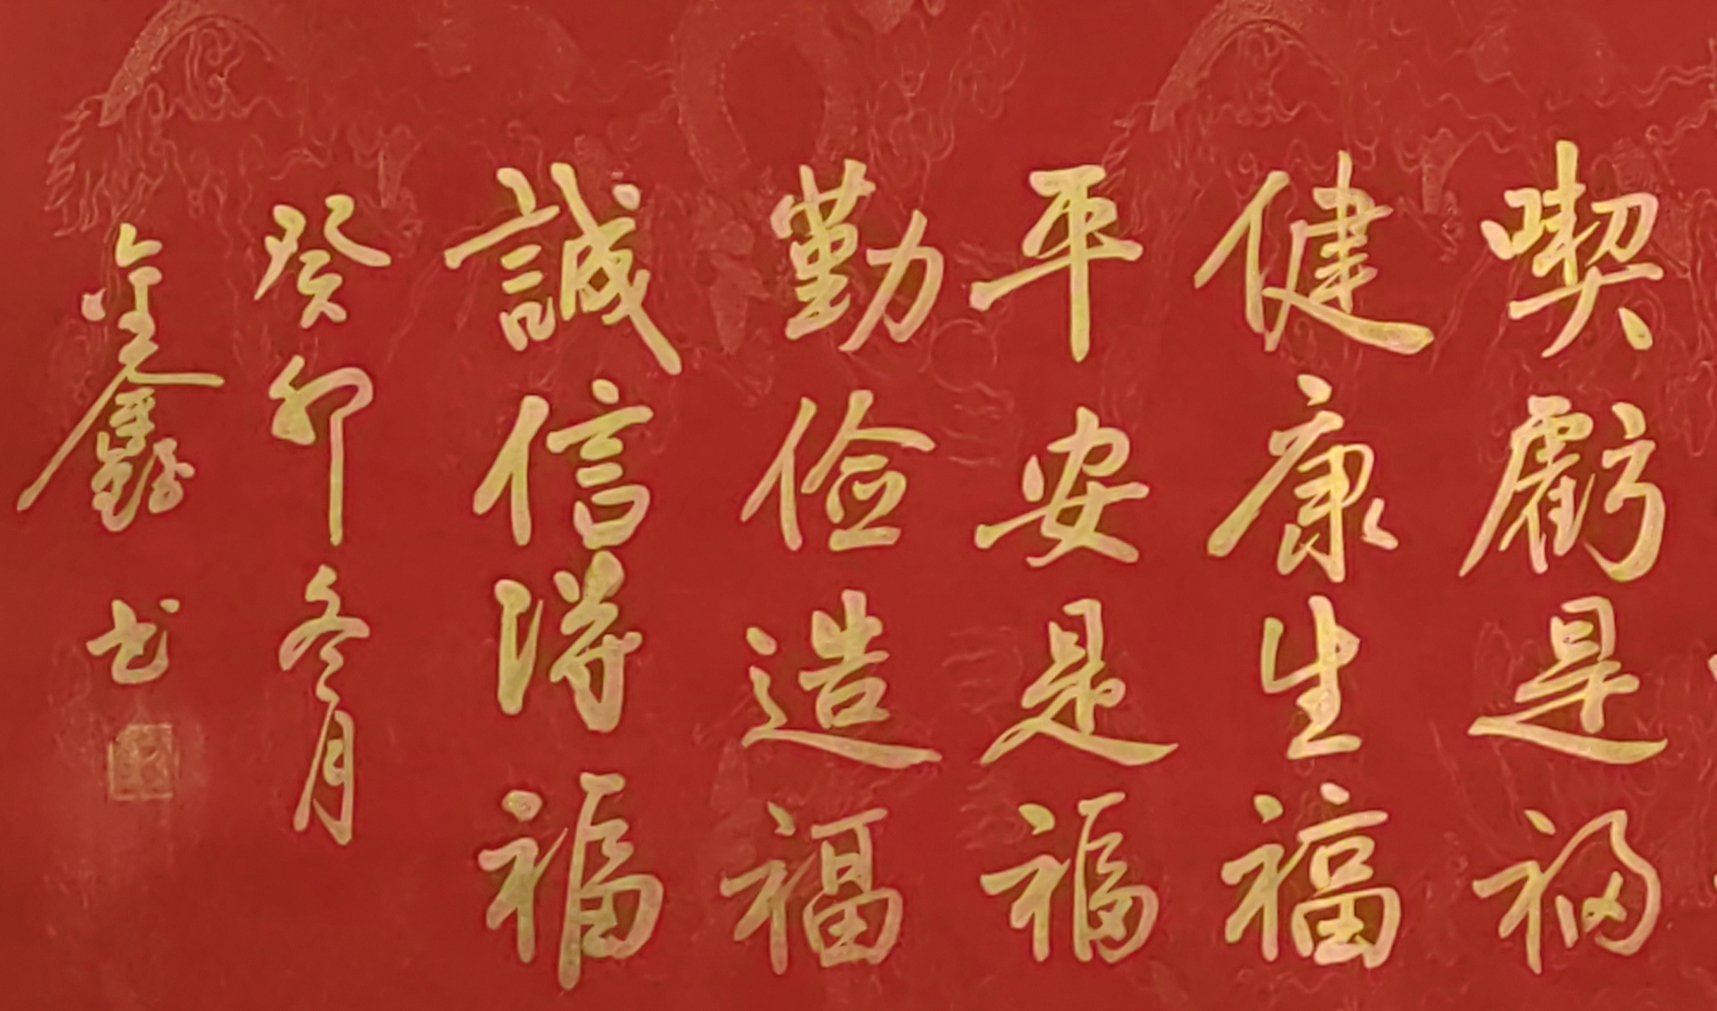 喫虧是福
健康生福
平安是福
勤俭造福
誠信得福
癸卯冬月
书